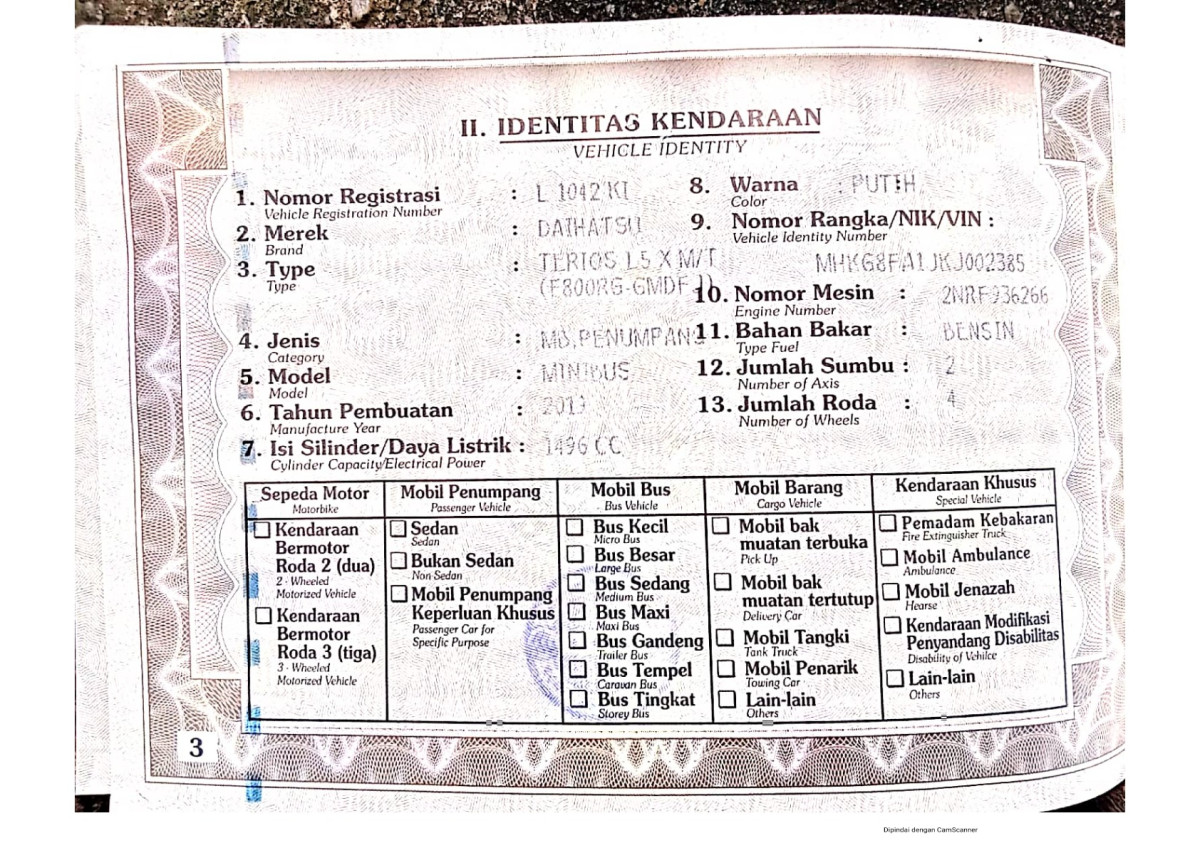 II. IDENTITAS KENDARAAN
VEHICLE IDENTITY
1. Nomor Registrasi : L 1042 KI
Vehicle Registration Number
2. Merek : DAIHATSU
Brand
3. Type : TERIOS 1.5 X M/T
Type
(F800RG-GMDF
4. Jenis : MB.PENUMPANG
Category
5. Model : MINIBUS
Model
6. Tahun Pembuatan :
Manufacture Year
7. Isi Silinder/Daya Listrik : 1496 CC
Cylinder Capacity/Electrical Power
8. Warna : PUTIH
Color
9. Nomor Rangka/NIK/VIN :
Vehicle Identity Number
MHKG8FA1JKJ002385
10. Nomor Mesin :
Engine Number
11. Bahan Bakar : BENSIN
Type Fuel
12. Jumlah Sumbu : 2
Number of Axis
13. Jumlah Roda : 4
Number of Wheels
Sepeda Motor
Motorbike
Kendaraan
Bermotor
Roda 2 (dua)
2 - Wheeled
Motorized Vehicle
Kendaraan
Bermotor
Roda 3 (tiga)
3 - Wheeled
Motorized Vehicle
Mobil Penumpang
Passenger Vehicle
Sedan
Sedan
Bukan Sedan
Non Sedan
Mobil Penumpang
Keperluan Khusus
Passenger Car for
Specific Purpose
Mobil Bus
Bus Vehicle
Bus Kecil
Micro Bus
Bus Besar
Large Bus
Bus Sedang
Medium Bus
Bus Maxi
Maxi Bus
Bus Gandeng
Trailer Bus
Bus Tempel
Caravan Bus
Bus Tingkat
Storey Bus
Mobil Barang
Cargo Vehicle
Mobil bak
muatan terbuka
Pick Up
Mobil bak
muatan tertutup
Delivery Car
Mobil Tangki
Tank Truck
Mobil Penarik
Towing Car
Lain-lain
Others
Kendaraan Khusus
Special Vehicle
Pemadam Kebakaran
Fire Extinguisher Truck
Mobil Ambulance
Ambulance
Mobil Jenazah
Hearse
Kendaraan Modifikasi
Penyandang Disabilitas
Disability of Vehilce
Lain-lain
Others
3
Dipindai dengan CamScanner